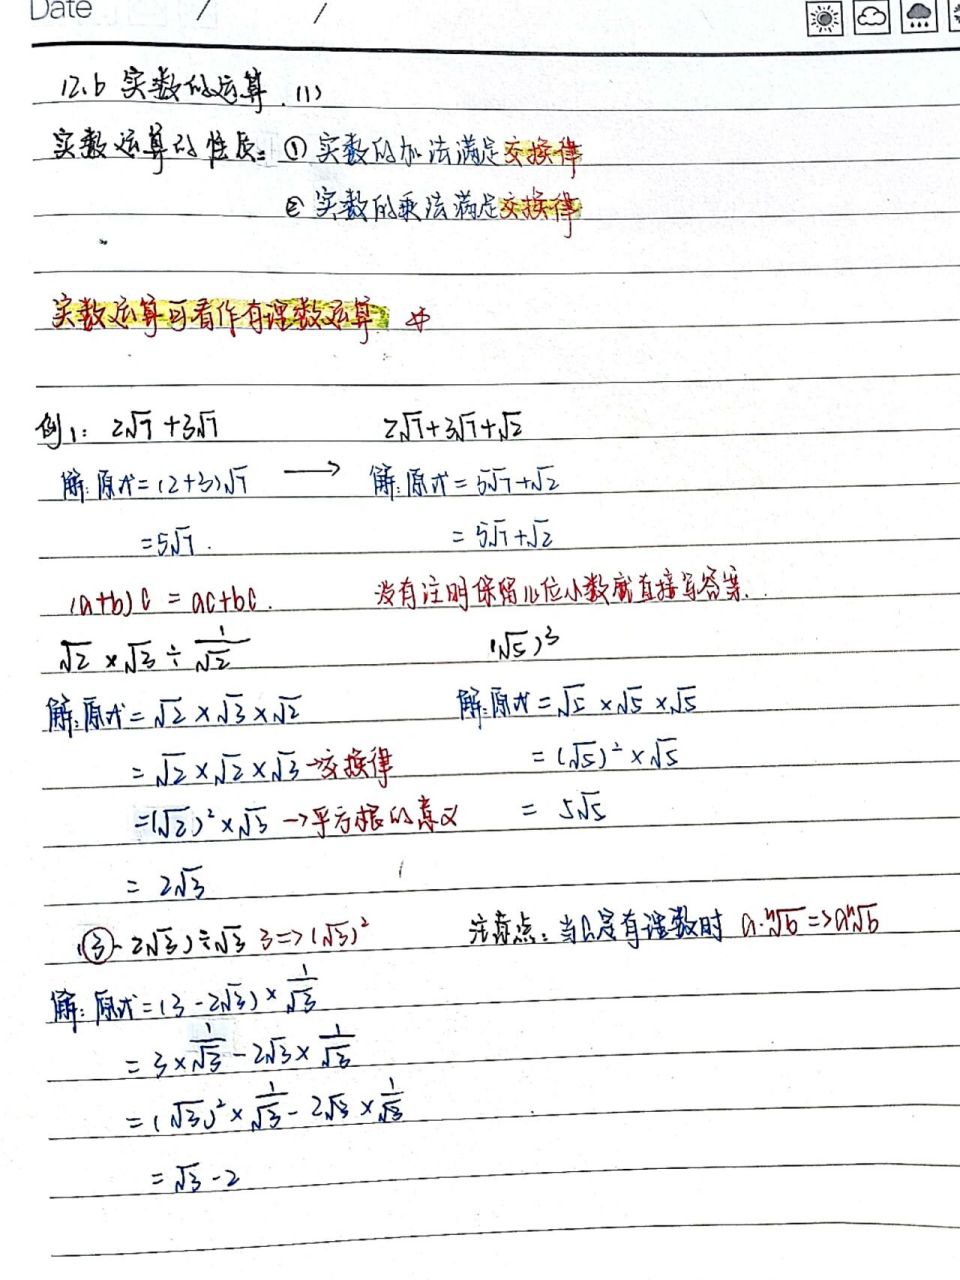 Date / /
12.6 实数的运算.(1)
实数运算的性质: ① 实数的加法满足交换律
② 实数的乘法满足交换律
实数运算可看作有理数运算
例1: 2√7 +3√7 2√7+3√7+√2
解:原式=(2+3)√7 → 解:原式=5√7+√2
=5√7. = 5√7+√2
(a+b)c = ac+bc. 没有注明保留几位小数就直接写答案.
√2 × √3 ÷ 1/√2 (√5)³
解:原式=√2 × √3 × √2 解:原式=√5 × √5 × √5
= √2 × √2 × √3 →交换律 = (√5)² × √5
=(√2)² × √3 →平方根的意义 = 5√5
= 2√3
(③ - 2√3) ÷ √3 3=>(√3)² 注意点: 当a是有理数时 a·ⁿ√b => aⁿ√b
解: 原式=(3 - 2√3) × 1/√3
= 3 × 1/√3 - 2√3 × 1/√3
= (√3)² × 1/√3 - 2√3 × 1/√3
= √3 - 2